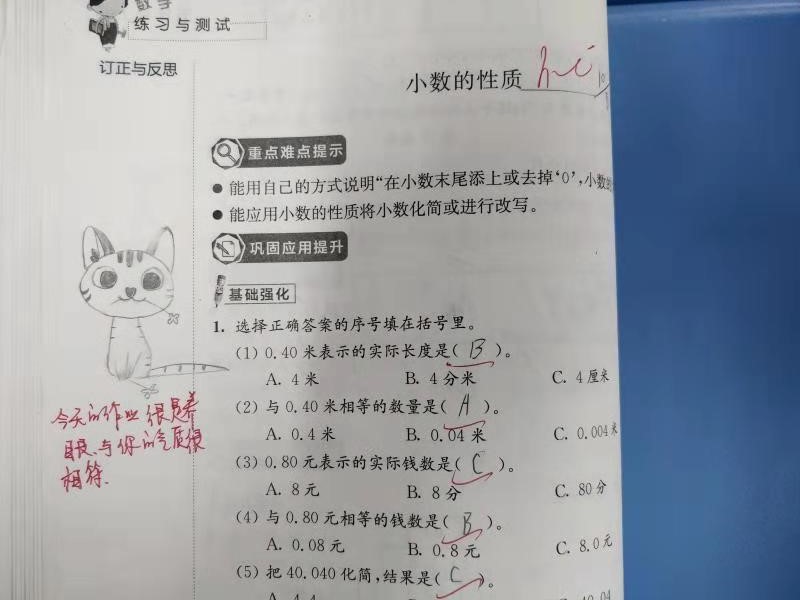 数学
练习与测试
订正与反思
小数的性质
重点难点提示
● 能用自己的方式说明“在小数末尾添上或去掉‘0’,小数的
● 能应用小数的性质将小数化简或进行改写。
巩固应用提升
基础强化
1. 选择正确答案的序号填在括号里。
(1) 0.40 米表示的实际长度是( B )。
A. 4 米 B. 4 分米 C. 4 厘米
(2) 与 0.40 米相等的数量是( A )。
A. 0.4 米 B. 0.04 米 C. 0.004 米
(3) 0.80 元表示的实际钱数是( C )。
A. 8 元 B. 8 分 C. 80 分
(4) 与 0.80 元相等的钱数是( B )。
A. 0.08 元 B. 0.8 元 C. 8.0 元
(5) 把 40.040 化简,结果是( C )。
今天的作业很是养
眼、与你的气质很
相符.